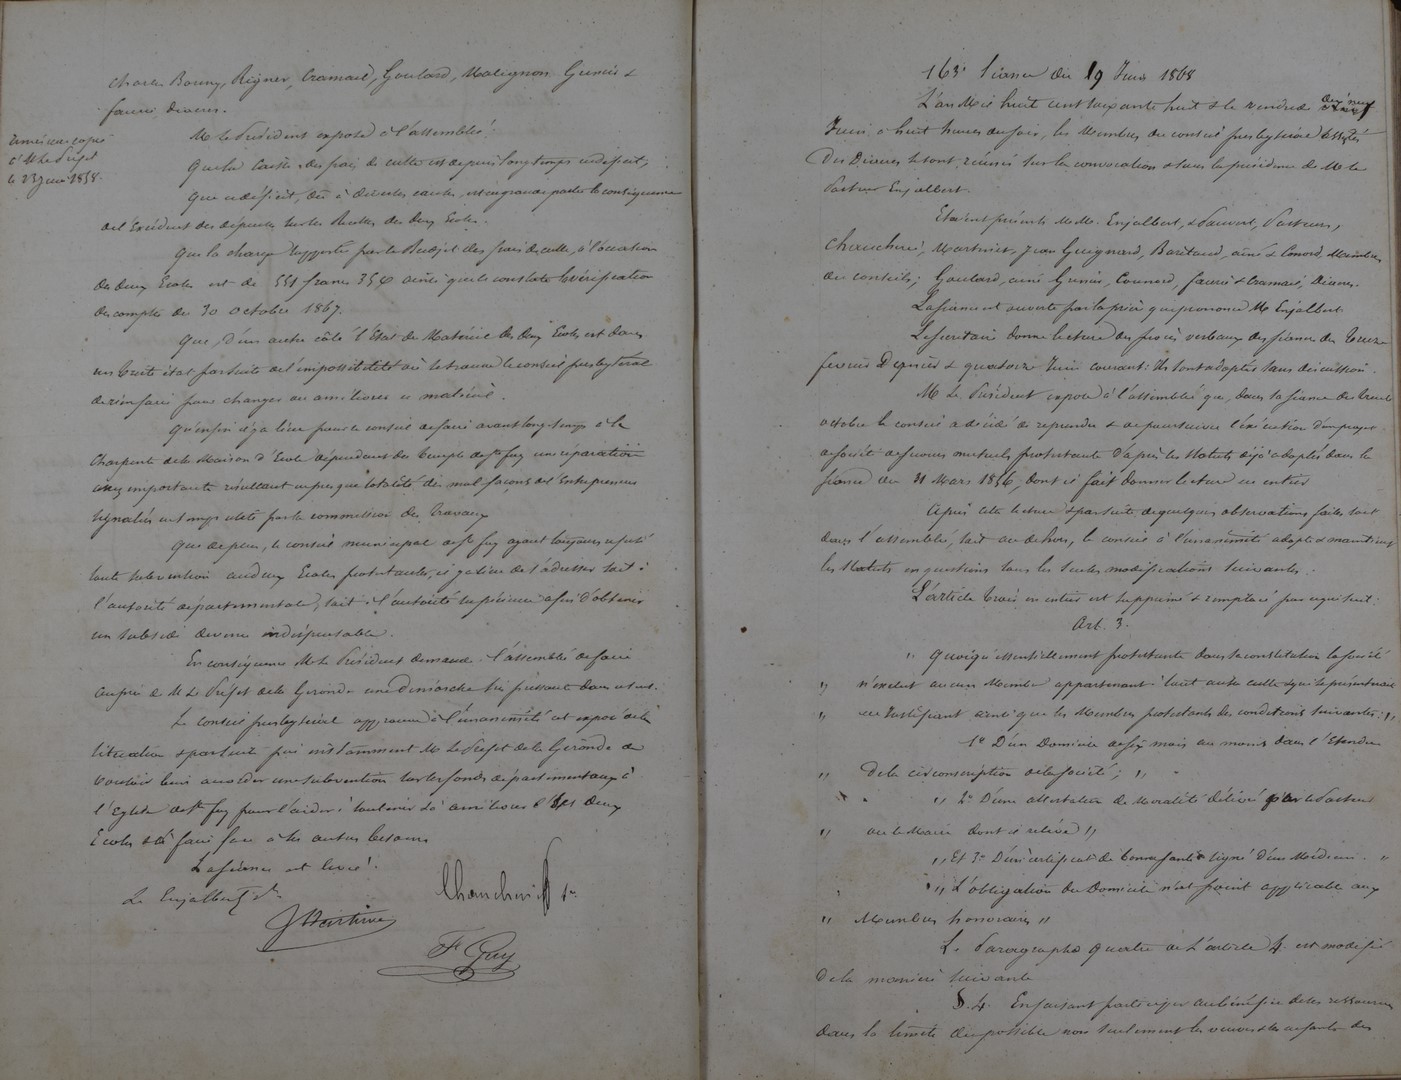 Charles Bonny, Régner, Cramail, Goulard, Matignon Grenier &
faurie diacres.
M. le Président expose à l'assemblée:
Que la Caisse des frais de culte est depuis longtemps en déficit,
que ce déficit, dû à diverses causes, est en grande partie la conséquence
de l'Excédent des dépenses sur les Recettes des deux Ecoles.
que la charge supportée par le Budget des frais de culte, à l'occasion
des deux Ecoles est de 551 francs 35 c ainsi que le constate la vérification
des comptes du 30 octobre 1867.
Que, d'un autre côté l'Etat du Matériel des deux Ecoles est dans
un triste état par suite de l'impossibilité où se trouve le conseil presbytéral
de rien faire pour changer ou améliorer ce matériel.
Qu'enfin il y a lieu pour le conseil de faire avant longtemps à la
Charpente de la Maison d'Ecole dépendance du Temple de Ste foy une réparation
assez importante résultant en presque totalité des mal façons de l'Entrepreneur
signalées en temps utile par la commission des Travaux
Que de plus, le conseil municipal de Ste foy ayant toujours refusé
toute subvention aux deux Ecoles protestantes, il y a lieu de s'adresser soit à
l'autorité départementale, soit à l'autorité supérieure afin d'obtenir
un subside devenu indispensable.
En conséquence M. le Président demande à l'assemblée de faire
auprès de M. Le Préfet de la Gironde une démarche
Le conseil presbytéral approuve à l'unanimité cet exposé de la
situation & par suite prie instamment M. Le Préfet de la Gironde de
vouloir bien accorder une subvention sur les fonds départementaux à
l'Eglise de Ste foy pour l'aider à soutenir & à améliorer ses deux
Ecoles & à faire face à ses autres besoins
La séance est levée.
Le Enjalbert
Chaucherie
J Martinet
F. Guy
copie
à M. le Préfet
le 23 juin
163e Séance du 19 Juin 1868
L'an Mil huit cent soixante huit & le vendredi dix neuf
Juin à huit heures du soir, les Membres du conseil presbytéral assistés
des Diacres se sont réunis sur la convocation & sous la présidence de M. le
Pasteur Enjalbert.
Etaient présents M.M. Enjalbert, & Pasteurs,
Chaucherie, Martinet, Jean Guignard, Baritaud, ainé & Conord, Membres
du conseil; Goulard, ainé Grenier, faurie & Cramail, Diacres.
La séance est ouverte par la prière que prononce M. Enjalbert.
Le secrétaire donne lecture des procès verbaux des séances du Treize
février Dernier & quatorze Juin courant: Ils sont adoptés sans discussion.
M. Le Président expose à l'assemblée que, dans sa séance du trente
octobre le conseil a décidé de reprendre & de poursuivre l'exécution d'un projet
de société de secours mutuels protestante d'après les Statuts déjà adoptés dans la
séance du 31 Mars 1856, dont il fait donner lecture en entier
Après cette lecture & par suite de quelques observations faites soit
dans l'assemblée, soit au dehors, le conseil à l'unanimité adopte & maintient
les Statuts en questions sous les seules modifications suivantes.
L'article trois en entier est supprimé & remplacé par ce qui suit:
Art. 3.
" Quoiqu'essentiellement protestante dans sa constitution la société
" n'exclut aucun Membre appartenant à tout autre culte
" en justifiant ainsi que les Membres protestants des conditions suivantes: "
1° D'un Domicile de six mois au moins dans l'Etendue
" de la circonscription de la société; " "
" 2° D'une attestation de Moralité délivrée par le Pasteur
" ou le Maire dont il relève "
" Et 3° D'un certificat de bonne santé signé d'un Médecin. "
" L'obligation du Domicile n'est point applicable aux
" Membres honoraires "
Le Paragraphe quatre de l'article 4 est modifié
de la manière suivante
§. 4. En faisant participer au bénéfice de ses ressources
dans la limite du possible non seulement les veuves & les enfants des